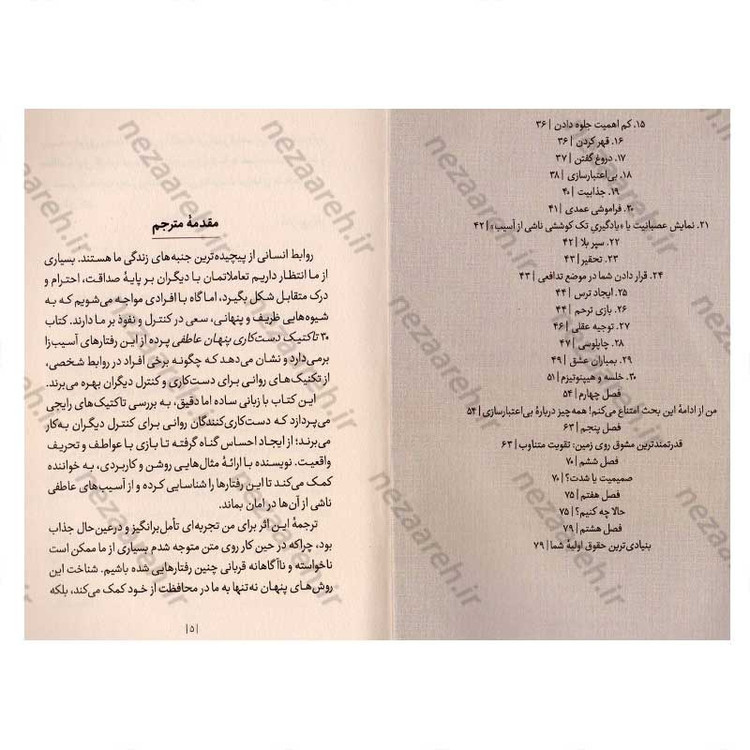 ۱۵. کم اهمیت جلوه دادن | ۳۶
۱۶. قهر کردن | ۳۶
۱۷. دروغ گفتن | ۳۷
۱۸. بی‌اعتبارسازی | ۳۸
۱۹. جذابیت | ۴۰
۲۰. فراموشی عمدی | ۴۱
۲۱. نمایش عصبانیت یا «یادگیریِ تک کوششی ناشی از آسیب» | ۴۲
۲۲. سپر بلا | ۴۲
۲۳. تحقیر | ۴۳
۲۴. قرار دادن شما در موضع تدافعی | ۴۳
۲۵. ایجاد ترس | ۴۴
۲۶. بازی ترحم | ۴۴
۲۷. توجیه عقلی | ۴۶
۲۸. چاپلوسی | ۴۷
۲۹. بمباران عشق | ۴۹
۳۰. خلسه و هیپنوتیزم | ۵۱
فصل چهارم | ۵۴
من از ادامهٔ این بحث امتناع می‌کنم! همه‌چیز دربارهٔ بی‌اعتبارسازی | ۵۴
فصل پنجم | ۶۳
قدرتمندترین مشوق روی زمین: تقویت متناوب | ۶۳
فصل ششم | ۷۰
صمیمیت یا شدت؟ | ۷۰
فصل هفتم | ۷۵
حالا چه کنیم؟ | ۷۵
فصل هشتم | ۷۹
بنیادی‌ترین حقوق اولیهٔ شما | ۷۹
مقدمهٔ مترجم
روابط انسانی از پیچیده‌ترین جنبه‌های زندگی ما هستند. بسیاری
از ما انتظار داریم تعاملاتمان با دیگران بر پایهٔ صداقت، احترام و
درک متقابل شکل بگیرد، اما گاه با افرادی مواجه می‌شویم که به
شیوه‌هایی ظریف و پنهانی، سعی در کنترل و نفوذ بر ما دارند. کتاب
۳۰ تاکتیک دست‌کاری پنهان عاطفی پرده از این رفتارهای آسیب‌زا
برمی‌دارد و نشان می‌دهد که چگونه برخی افراد در روابط شخصی،
از تکنیک‌های روانی برای دست‌کاری و کنترل دیگران بهره می‌برند.
این کتاب با زبانی ساده اما دقیق، به بررسی تاکتیک‌های رایجی
می‌پردازد که دست‌کاری‌کنندگان روانی برای کنترل دیگران به‌کار
می‌برند؛ از ایجاد احساس گناه گرفته تا بازی با عواطف و تحریف
واقعیت. نویسنده با ارائهٔ مثال‌هایی روشن و کاربردی، به خواننده
کمک می‌کند تا این رفتارها را شناسایی کرده و از آسیب‌های عاطفی
ناشی از آن‌ها در امان بماند.
ترجمهٔ این اثر برای من تجربه‌ای تأمل‌برانگیز و درعین‌حال جذاب
بود، چراکه در حین کار روی متن متوجه شدم بسیاری از ما ممکن است
ناخواسته و ناآگاهانه قربانی چنین رفتارهایی شده باشیم. شناخت این
روش‌های پنهان نه‌تنها به ما در محافظت از خود کمک می‌کند، بلکه
| ۵ |
nezaareh.ir